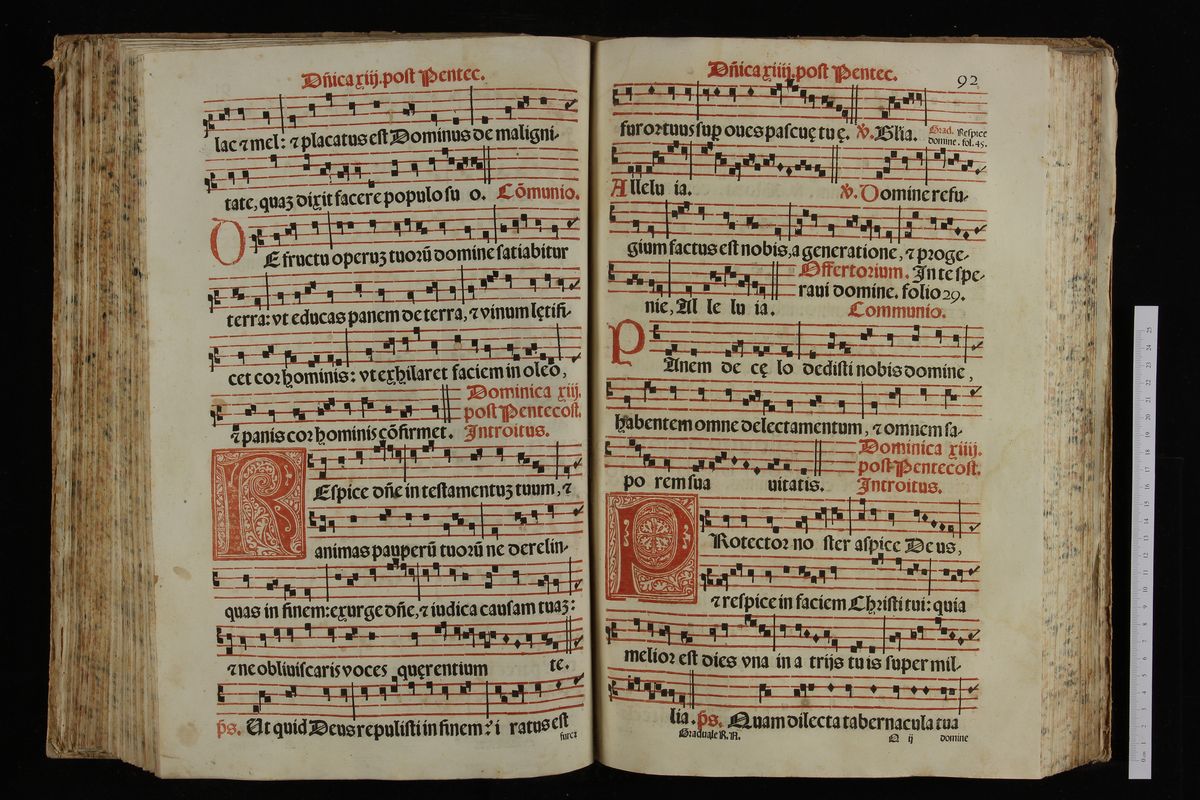 Dñica xiij. post Pentec.
lac ⁊ mel: ⁊ placatus est Dominus de maligni-
tate, quaʒ dixit facere populo su o. Cõmunio.
DE fructu operuʒ tuorũ domine satiabitur
terra: vt educas panem de terra, ⁊ vinum lętifi-
cet cor hominis: vt exhilaret faciem in oleo,
⁊ panis cor hominis cõfirmet. Dominica xiij.
post Pentecost.
Introitus.
REspice dñe in testamentuʒ tuum, ⁊
animas pauperũ tuorũ ne derelin-
quas in finem: exurge dñe, ⁊ iudica causam tuaʒ:
⁊ ne obliuiscaris voces quęrentium te.
p̃s. Ut quid Deus repulisti in finem: i ratus est
furor
Dñica xiiij. post Pentec. 92
furor tuus sup oues pascuę tu ę. ℣. Gl̃ia. Grad. Respice
domine. fol. 45.
Allelu ia. ℣. Domine refu-
gium factus est nobis, a generatione, ⁊ proge-
nie, Al le lu ia. Offertorium. In te spe-
raui domine. folio 29.
Communio.
PAnem de cę lo dedisti nobis domine,
habentem omne delectamentum, ⁊ omnem sa-
po rem sua uitatis. Dominica xiiij.
post Pentecost.
Introitus.
PRotector no ster aspice De us,
⁊ respice in faciem Christi tui: quia
melior est dies vna in a trijs tu is super mil-
lia. p̃s. Quam dilecta tabernacula tua
Graduale R.N. N ij domine